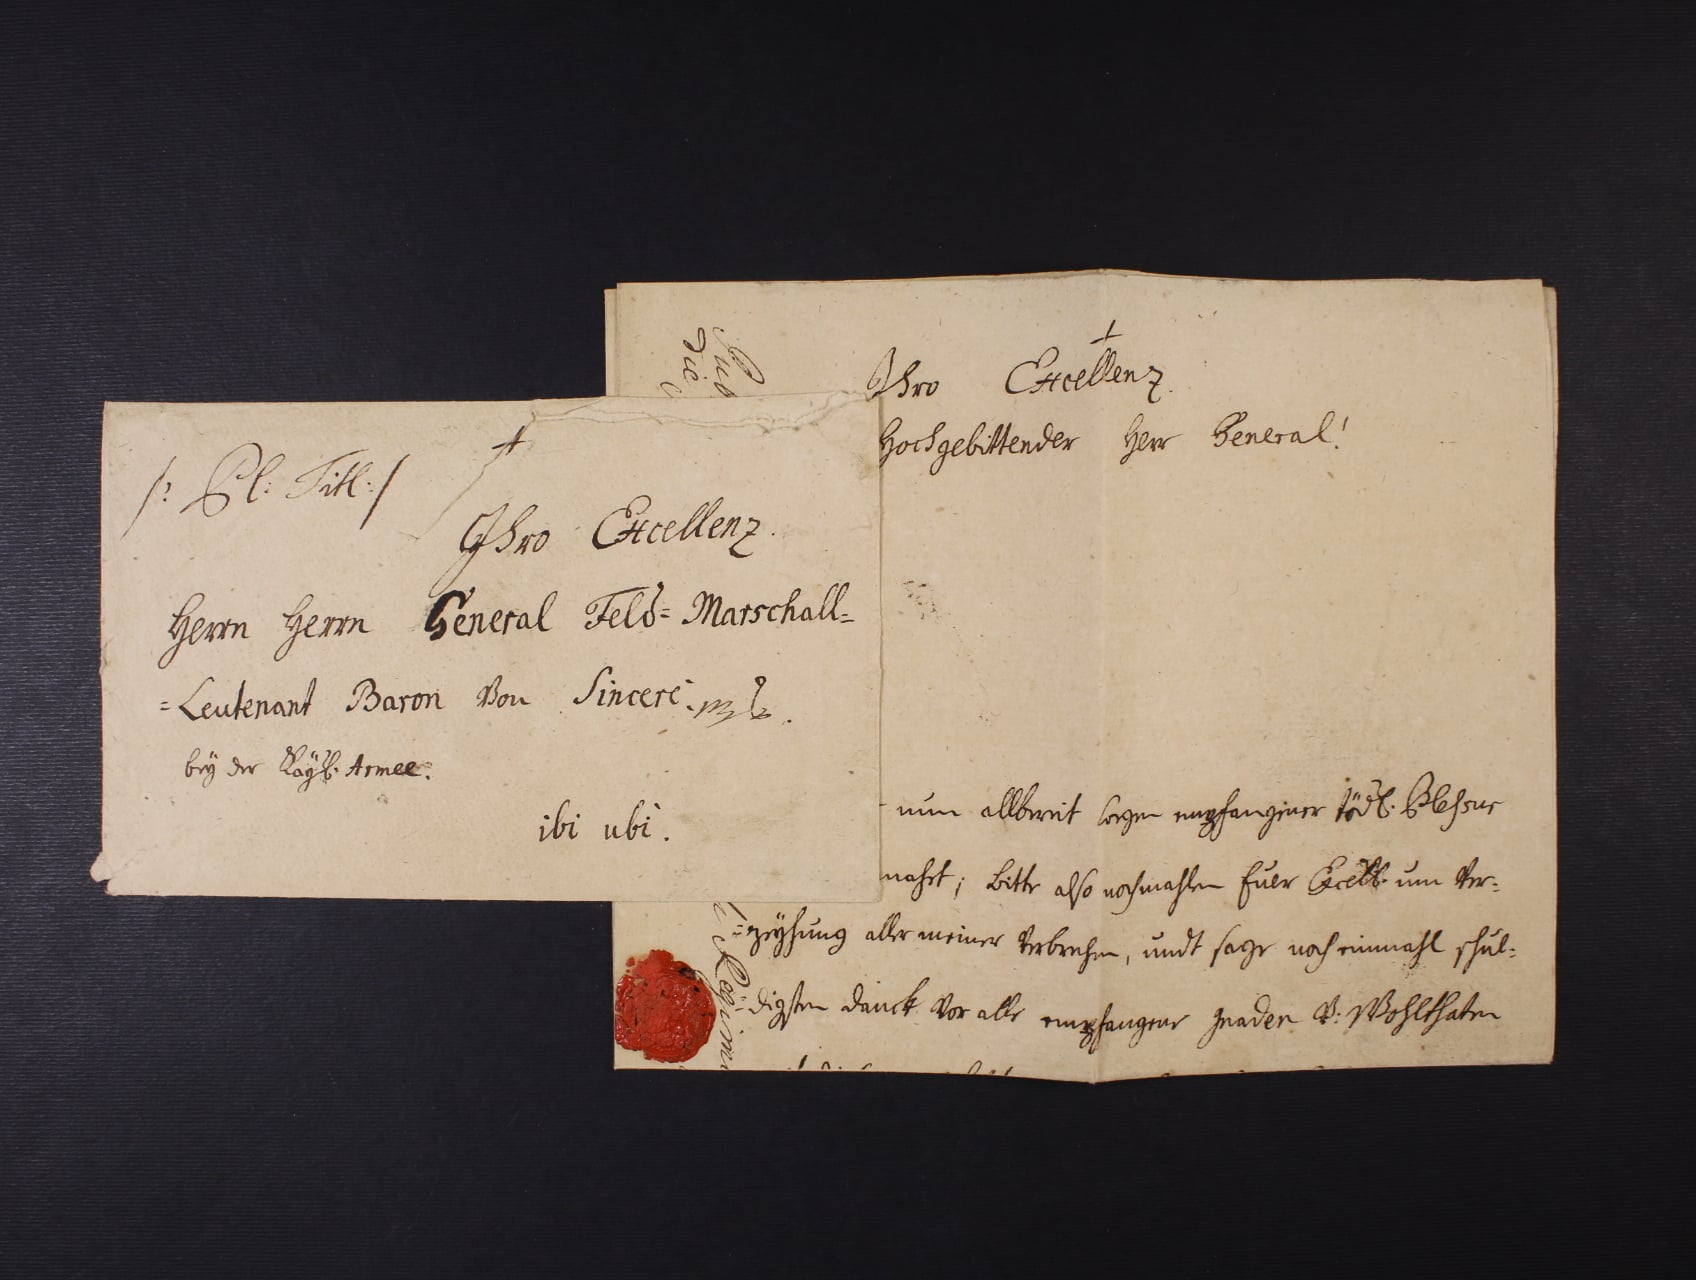 /: Pl: Titl: /
Ihro Excellenz.
Herrn Herrn General Feld= Marschall=
=Leutenant Baron Von Sincere
bey der Kaÿßl: Armee.
ibi ubi.
Ihro Excellenz.
Hochgebittender Herr General!
nun allbereit wegen empfangener tödl: Blehsur
nahet; bitte also nochmahlen Euer Excell: um Ver=
=zeÿhung aller meiner Verbrechen, undt sage noch einmahl schul=
=digsten danck vor alle empfangene gnaden V: Wohlthaten
die